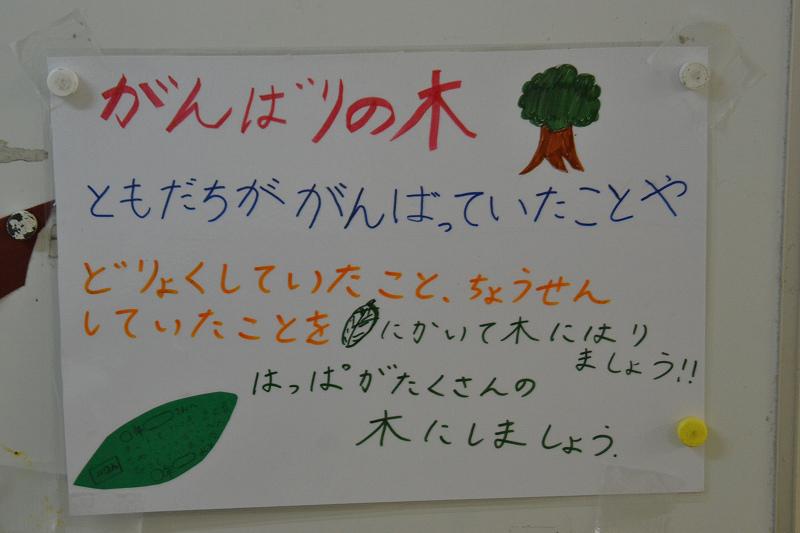 がんばりの木
ともだちががんばっていたことや
どりょくしていたこと、ちょうせん
していたことを にかいて木にはり
ましょう!!
はっぱがたくさんの
木にしましょう.